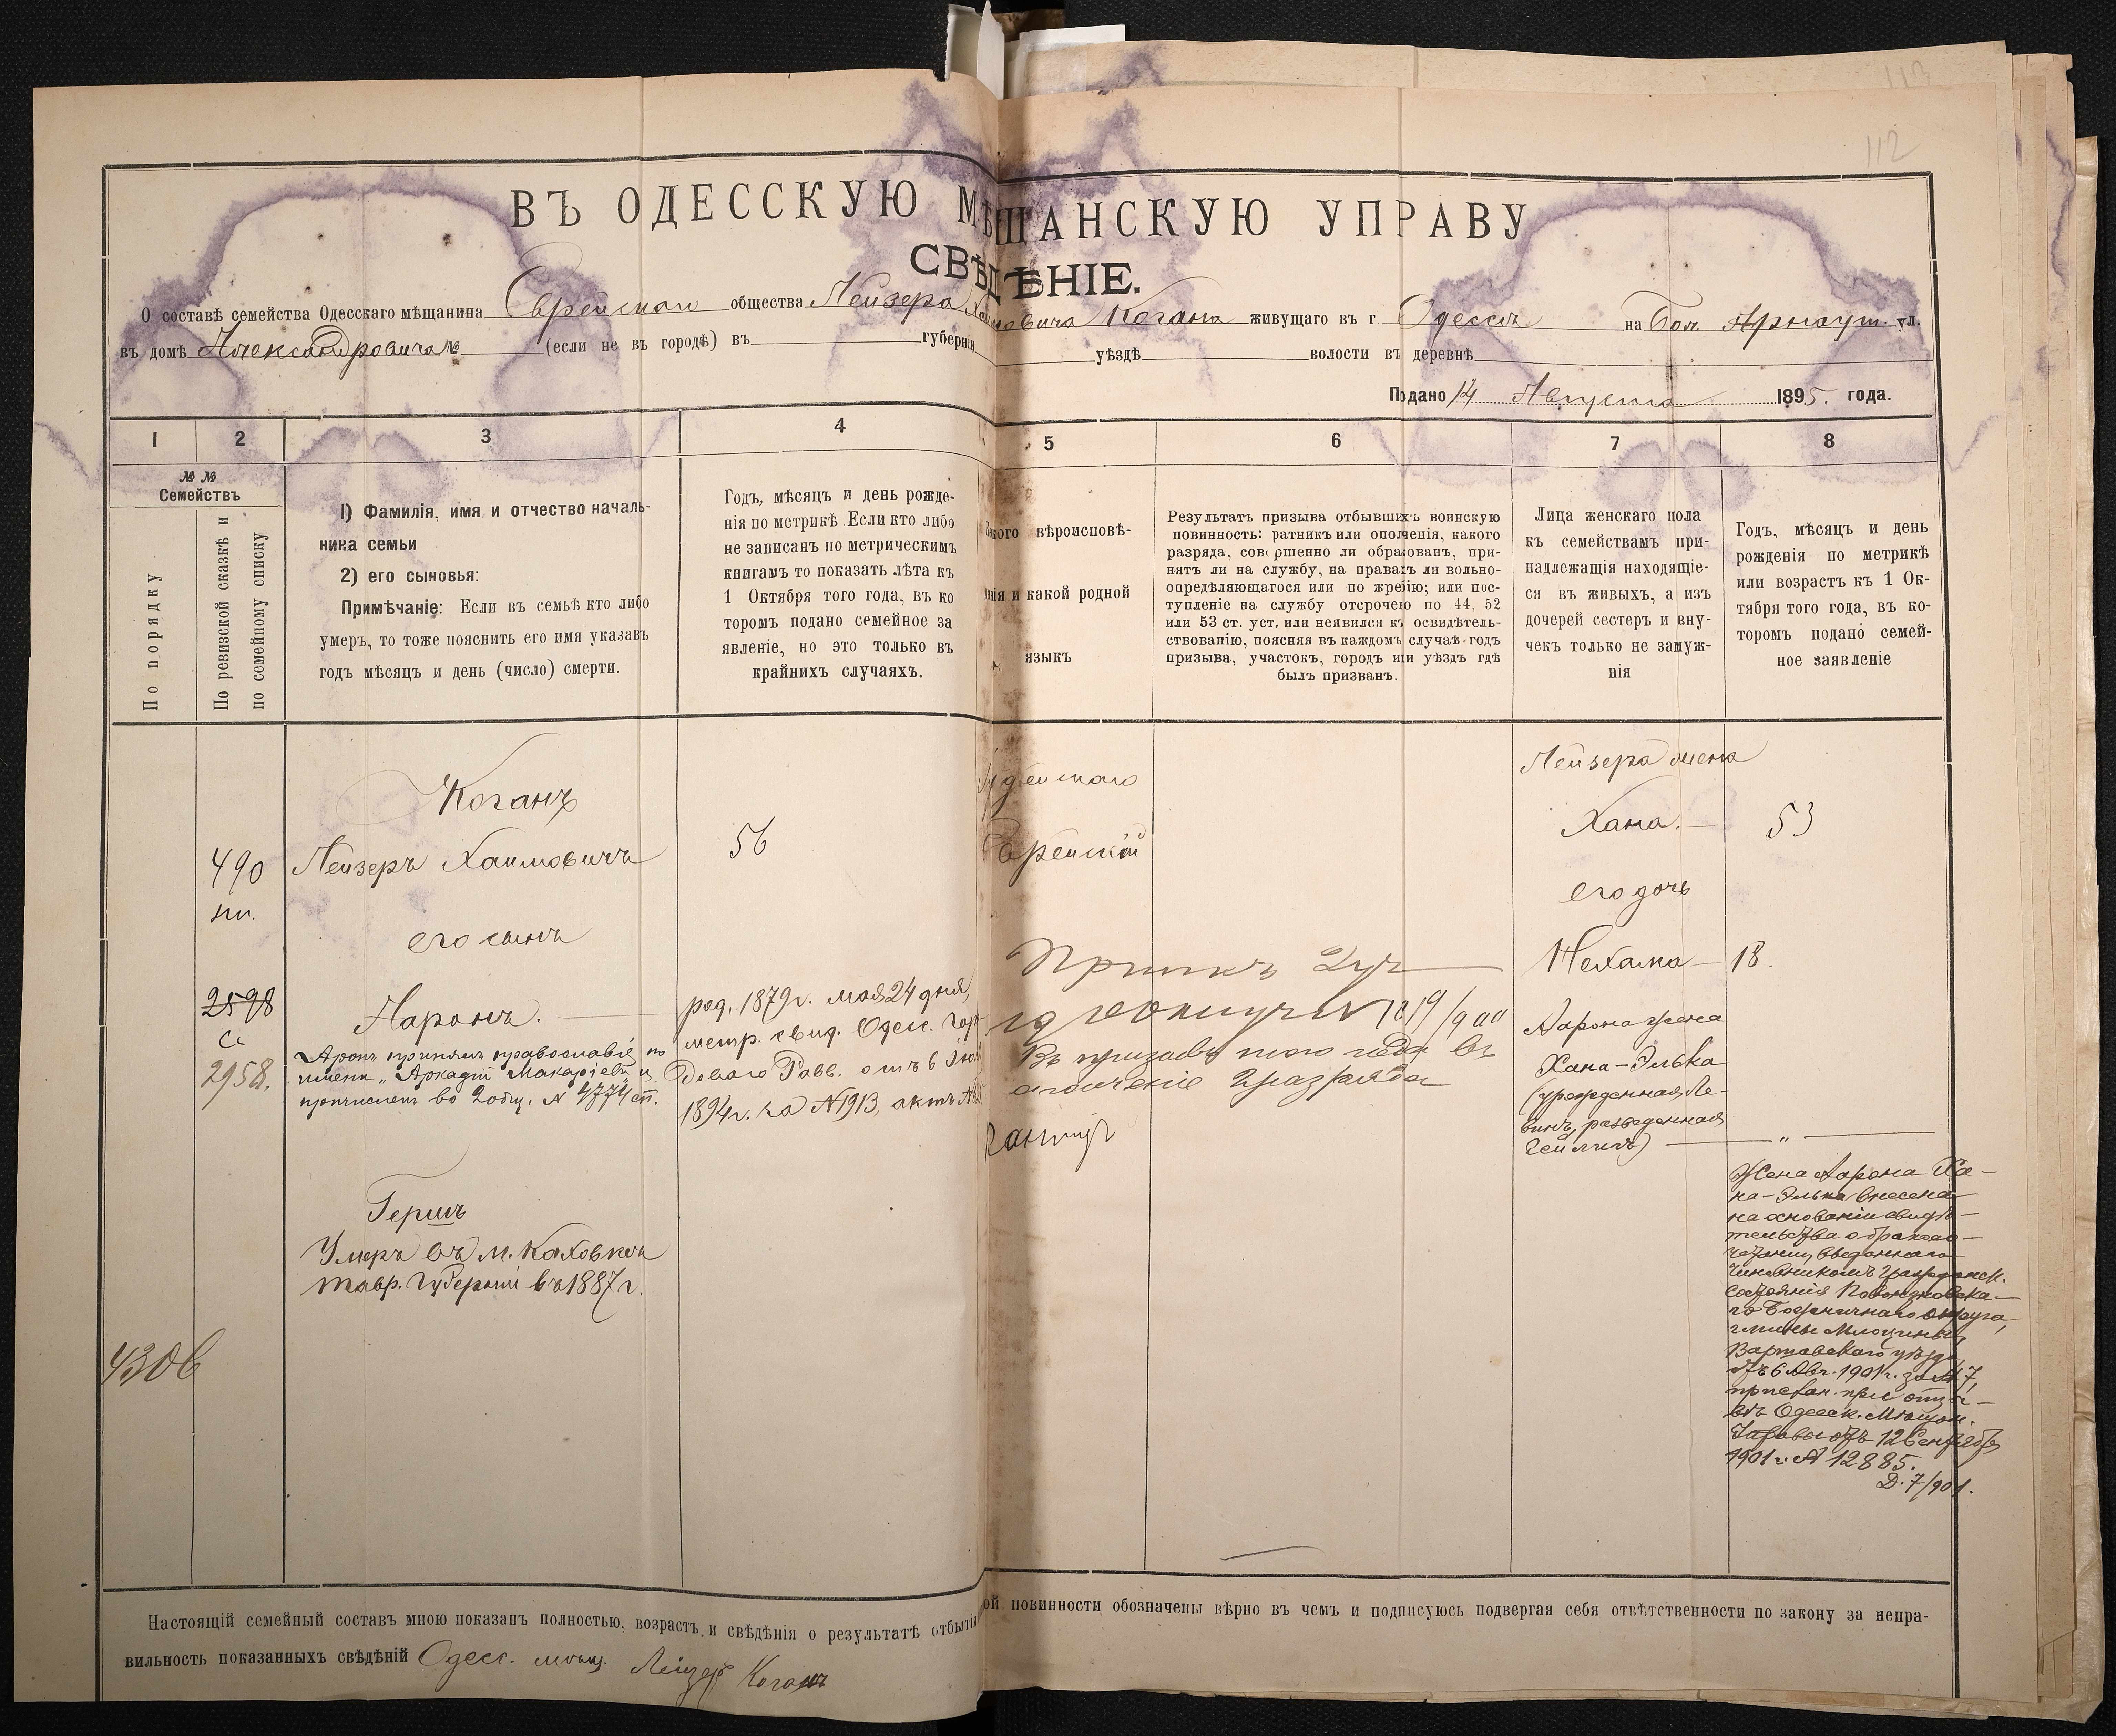 112
ВЪ ОДЕССКУЮ МѢЩАНСКУЮ УПРАВУ
СВѢДѢНІЕ.
О составѣ семейства Одесскаго мѣщанина Еврейскаго общества Лейзера Хаимовича Когана живущаго въ г Одессѣ на Бол. Арнаут. ул.
въ домѣ Александровича № (если не въ городѣ) въ губерніи уѣздѣ волости въ деревнѣ
Подано 14 Августа 1895. года.
1 2 3 4 5 6 7 8
№ №
Семействъ
По порядку
По ревизской сказкѣ и
по семейному списку
1) Фамилія, имя и отчество началь-
ника семьи
2) его сыновья:
Примѣчаніе: Если въ семьѣ кто либо
умеръ, то тоже пояснить его имя указавъ
годъ мѣсяцъ и день (число) смерти.
Годъ, мѣсяцъ и день рожде-
нія по метрикѣ Если кто либо
не записанъ по метрическимъ
книгамъ то показать лѣта къ
1 Октября того года, въ ко
торомъ подано семейное за
явленіе, но это только въ
крайнихъ случаяхъ.
вѣроисповѣ-
и какой родной
языкъ
Результатъ призыва отбывшихъ воинскую
повинность: ратникъ или ополченія, какого
разряда, совершенно ли образованъ, при-
нятъ ли на службу, на правахъ ли вольно-
опредѣляющагося или по жребію; или пос-
тупленіе на службу отсрочено по 44, 52
или 53 ст. уст. или неявился къ освидѣтель-
ствованію, поясняя въ каждомъ случаѣ годъ
призыва, участокъ, городъ или уѣздъ гдѣ
былъ призванъ.
Лица женскаго пола
къ семействамъ при-
надлежащія находящіе-
ся въ живыхъ, а изъ
дочерей сестеръ и вну-
чекъ только не замуж-
нія
Годъ, мѣсяцъ и день
рожденія по метрикѣ
или возрастъ къ 1 Ок-
тября того года, въ ко-
торомъ подано семей-
ное заявленіе
490
Коганъ
Лейзеръ Хаимовичъ
56
Іудейскаго
Еврейскій
Лейзера жена
Хана. —
53
его дочь
Нехама — 18.
его сынъ
2598
2958.
Ааронъ. —
Аронъ принялъ православіе по
имени „Аркадій Макарьевъ" и
причисленъ во 2 общ. № 4774 сп.
род. 1879 г. мая 24 дня,
метр. свид. Одесс. Горо-
доваго Равв. отъ 6 Іюля
1894 г. за №1913, актъ №
Призывъ 2 уч
1900
Въ призывъ того года въ
ополченіе 2 разряда
Аарона жена
Хана-Элька
(урожденная Ле-
винъ, разведенная
— „ —
Гершъ
Умеръ въ м. Каховкѣ
Тавр. Губерніи въ 1887 г.
4306
Жена Аарона Ха-
на-Элька внесена
на основаніи свидѣ-
тельства о бракосо-
четаніи выданнаго
чиновникомъ гражданск.
состоянія Повонзковска-
го Божничнаго округа,
гмины Млоцины
Варшавскаго уѣзда
отъ 6 Авг. 1901 г. за № 7,
при отзы-
вѣ Одесск. Мѣщан.
Управы отъ 12 Сентября
1901 г. № 12885.
Д. 7/901.
Настоящій семейный составъ мною показанъ полностью, возрастъ и свѣдѣнія о результатѣ отбытія повинности обозначены вѣрно въ чемъ и подписуюсь подвергая себя отвѣтственности по закону за непра-
вильность показанныхъ свѣдѣній Одесс. мѣщ. Лейзеръ Коганъ